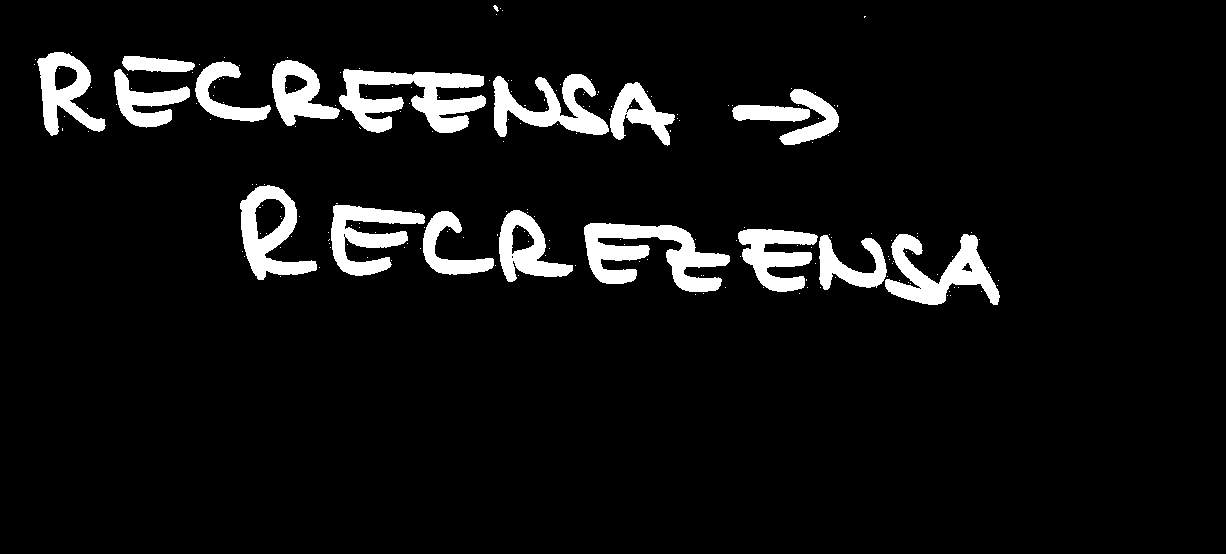 RECREENSA →
RECREZENSA